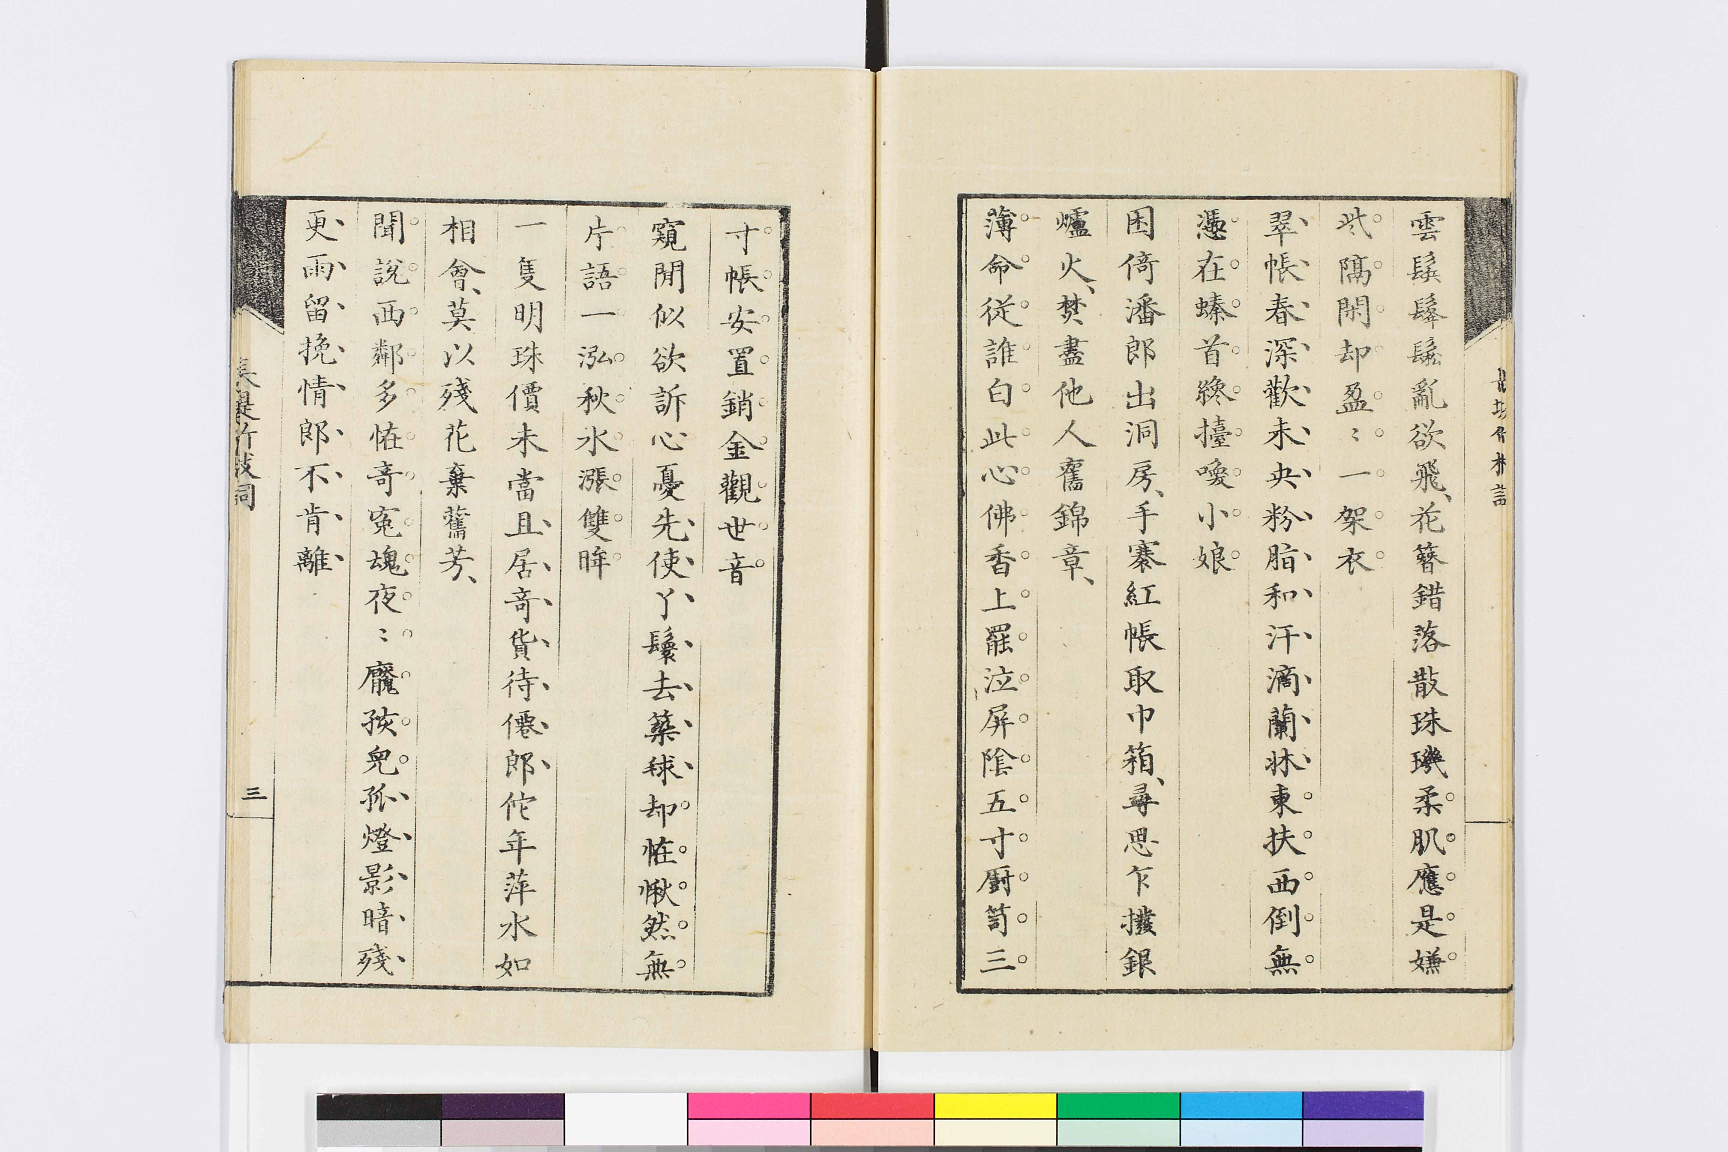 雲鬟髼鬆亂欲飛、花簪錯落散珠璣柔肌應是嫌
步隔閑却盈〻一架衣
翠帳春深歡未央粉脂和汗滴蘭牀東扶西倒無
憑在螓首纔擡喚小娘
困倚潘郎出洞房、手褰紅帳取巾箱、尋思乍撥銀
爐火、焚盡他人舊錦章、
薄命從誰白此心佛香上罷泣屏陰五寸廚笥三
寸帳安置銷金觀世音
窺閒似欲訴心憂先使丫鬟去築毬却怪愀然無
片語一泓秋水漲雙眸
一隻明珠價未當且居竒貨待僊郎佗年萍水如
相會、莫以殘花棄舊芳、
聞說西鄰多怪竒寃魂夜〻魘孩兒孤燈影暗殘
更雨留挽情郎不肯離
竹枝詞
三